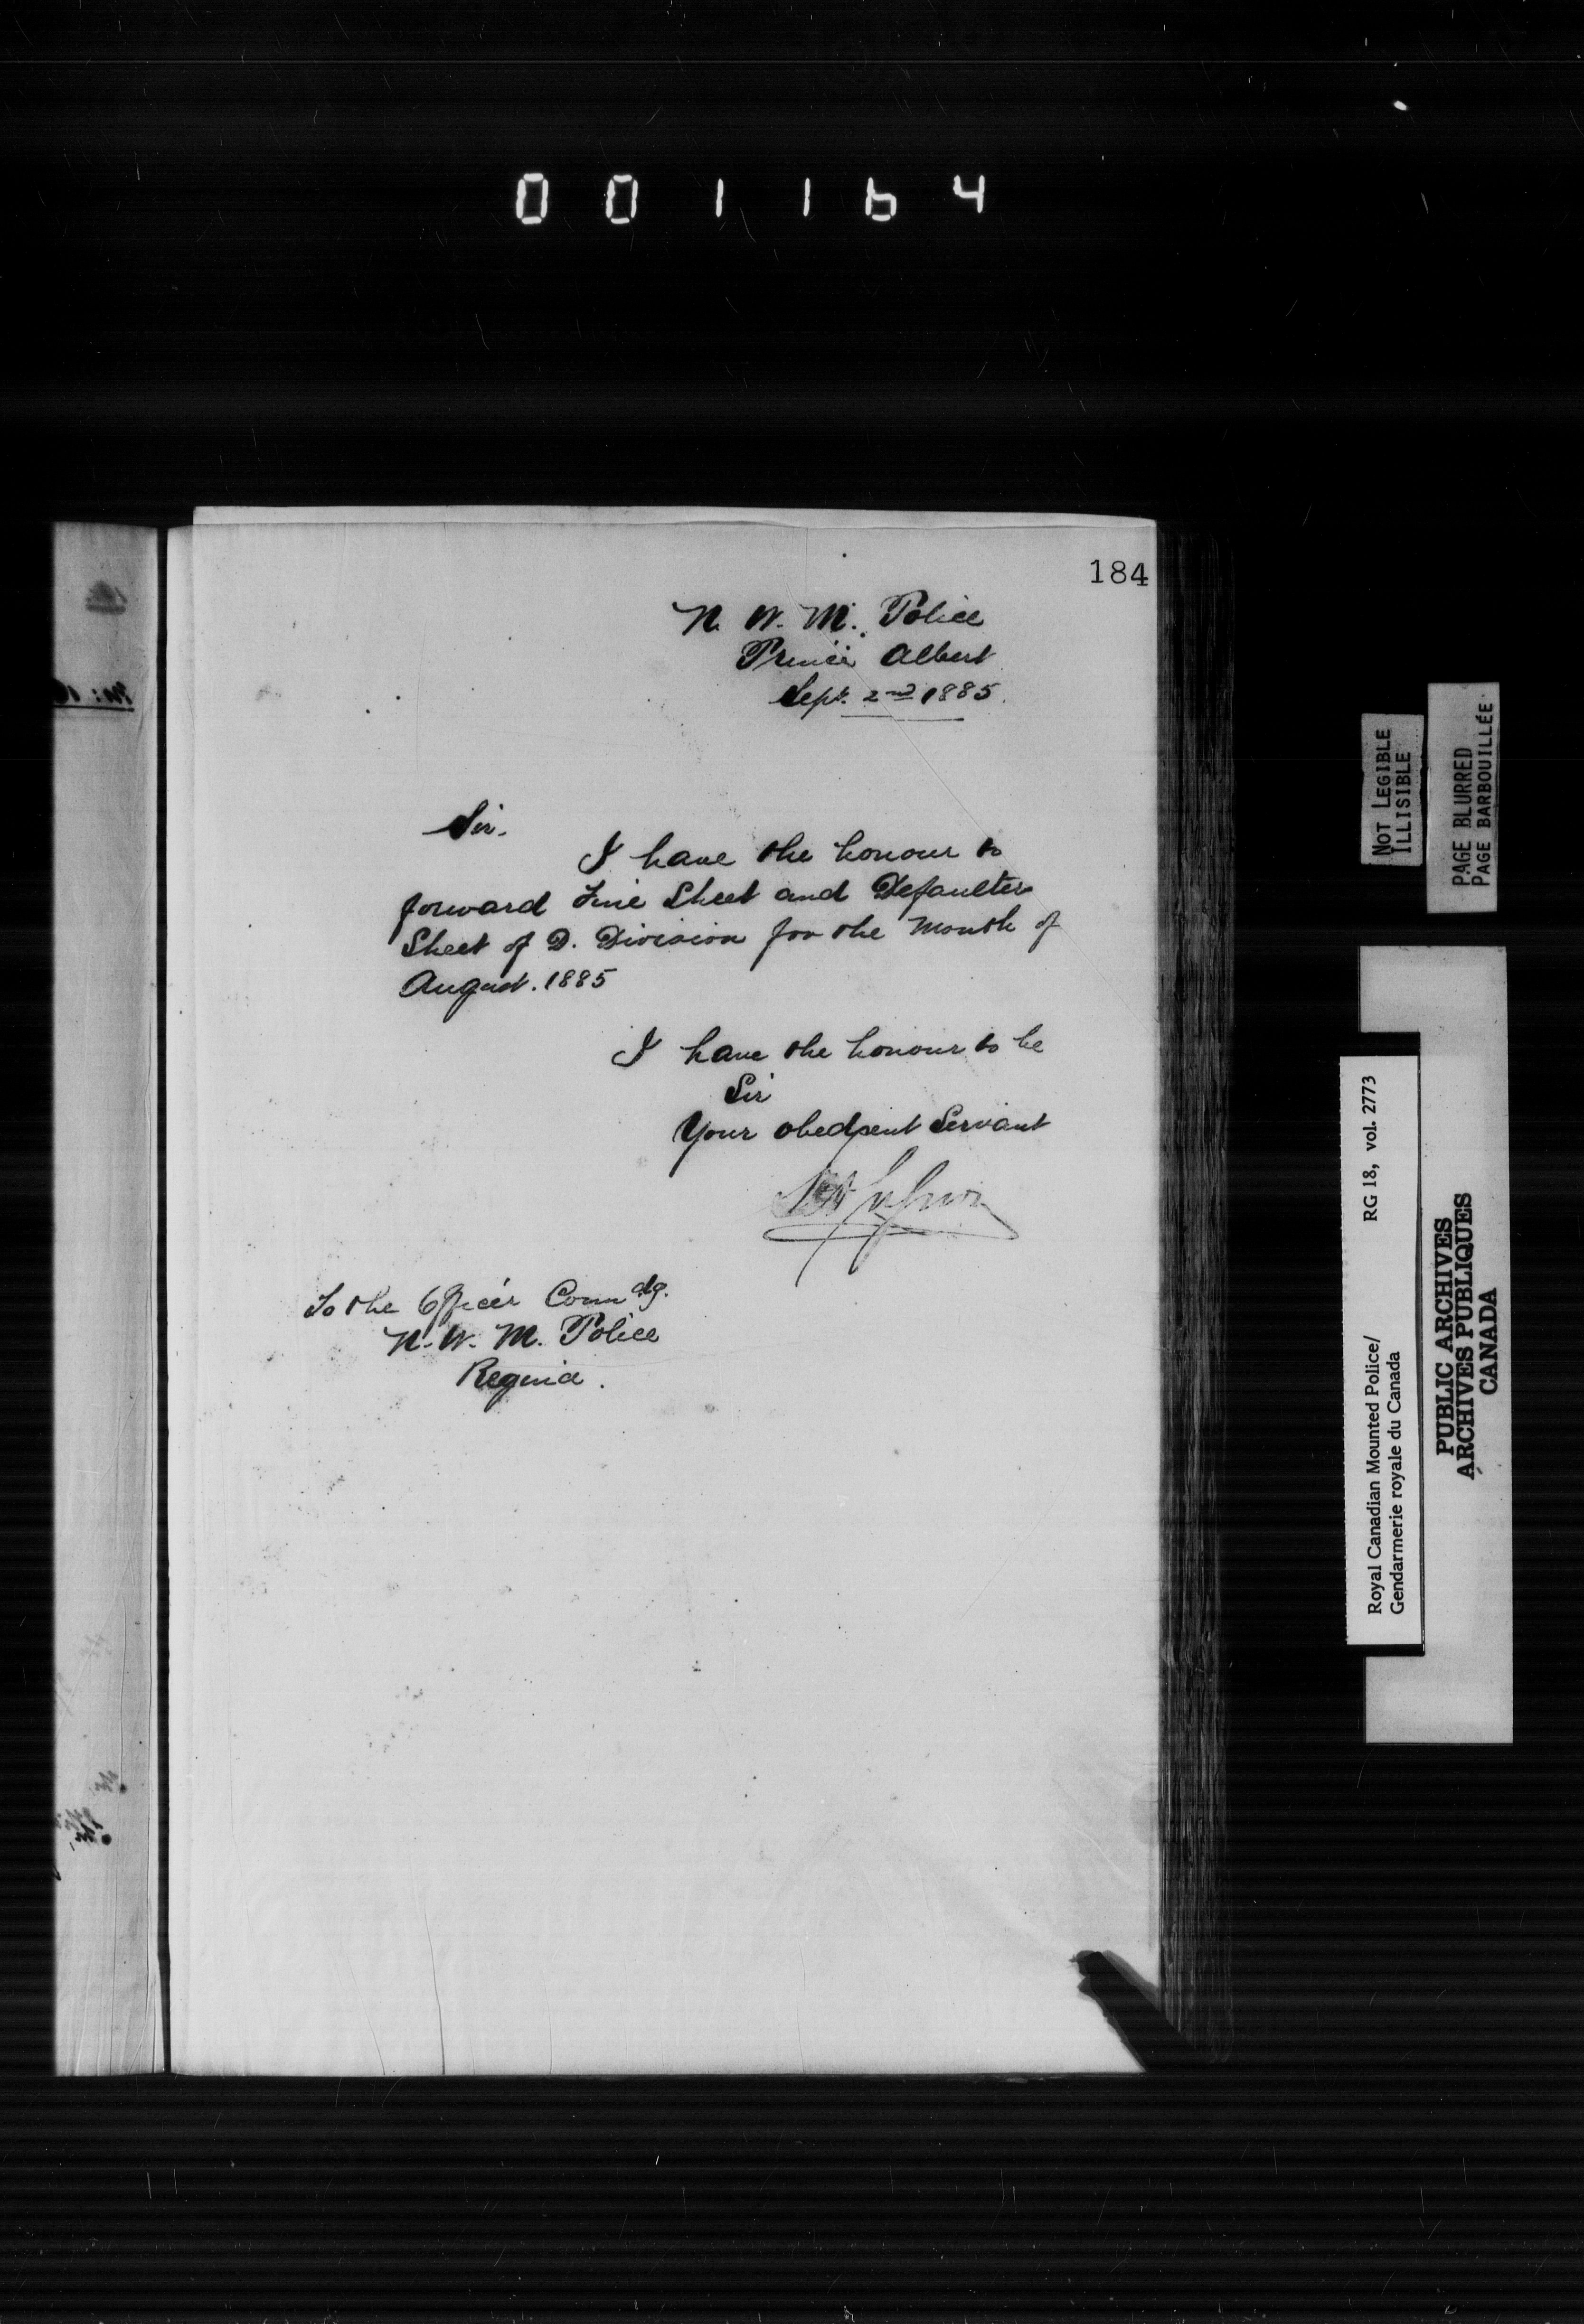 001164
184
N. W. M. Police
Prince Albert
Sept. 2nd 1885.
Sir.
I have the honour to
forward Fine Sheet and Defaulter
Sheet of D. Division for the Month of
August. 1885
I have the honour to be
Sir
Your obedient Servant
To the Officer Commdg.
N. W. M. Police
Regina.
NOT LEGIBLE
ILLISIBLE
PAGE BLURRED
PAGE BARBOUILLÉE
Royal Canadian Mounted Police/ RG 18, vol. 2773
Gendarmerie royale du Canada
PUBLIC ARCHIVES
ARCHIVES PUBLIQUES
CANADA